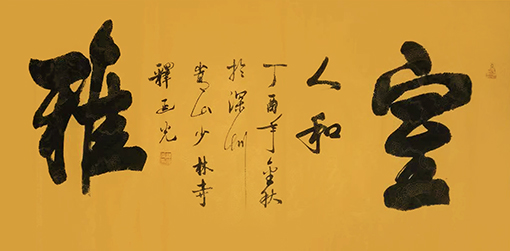 室
人和
丁酉年金秋
於深圳
嵩山少林寺
釋
雅